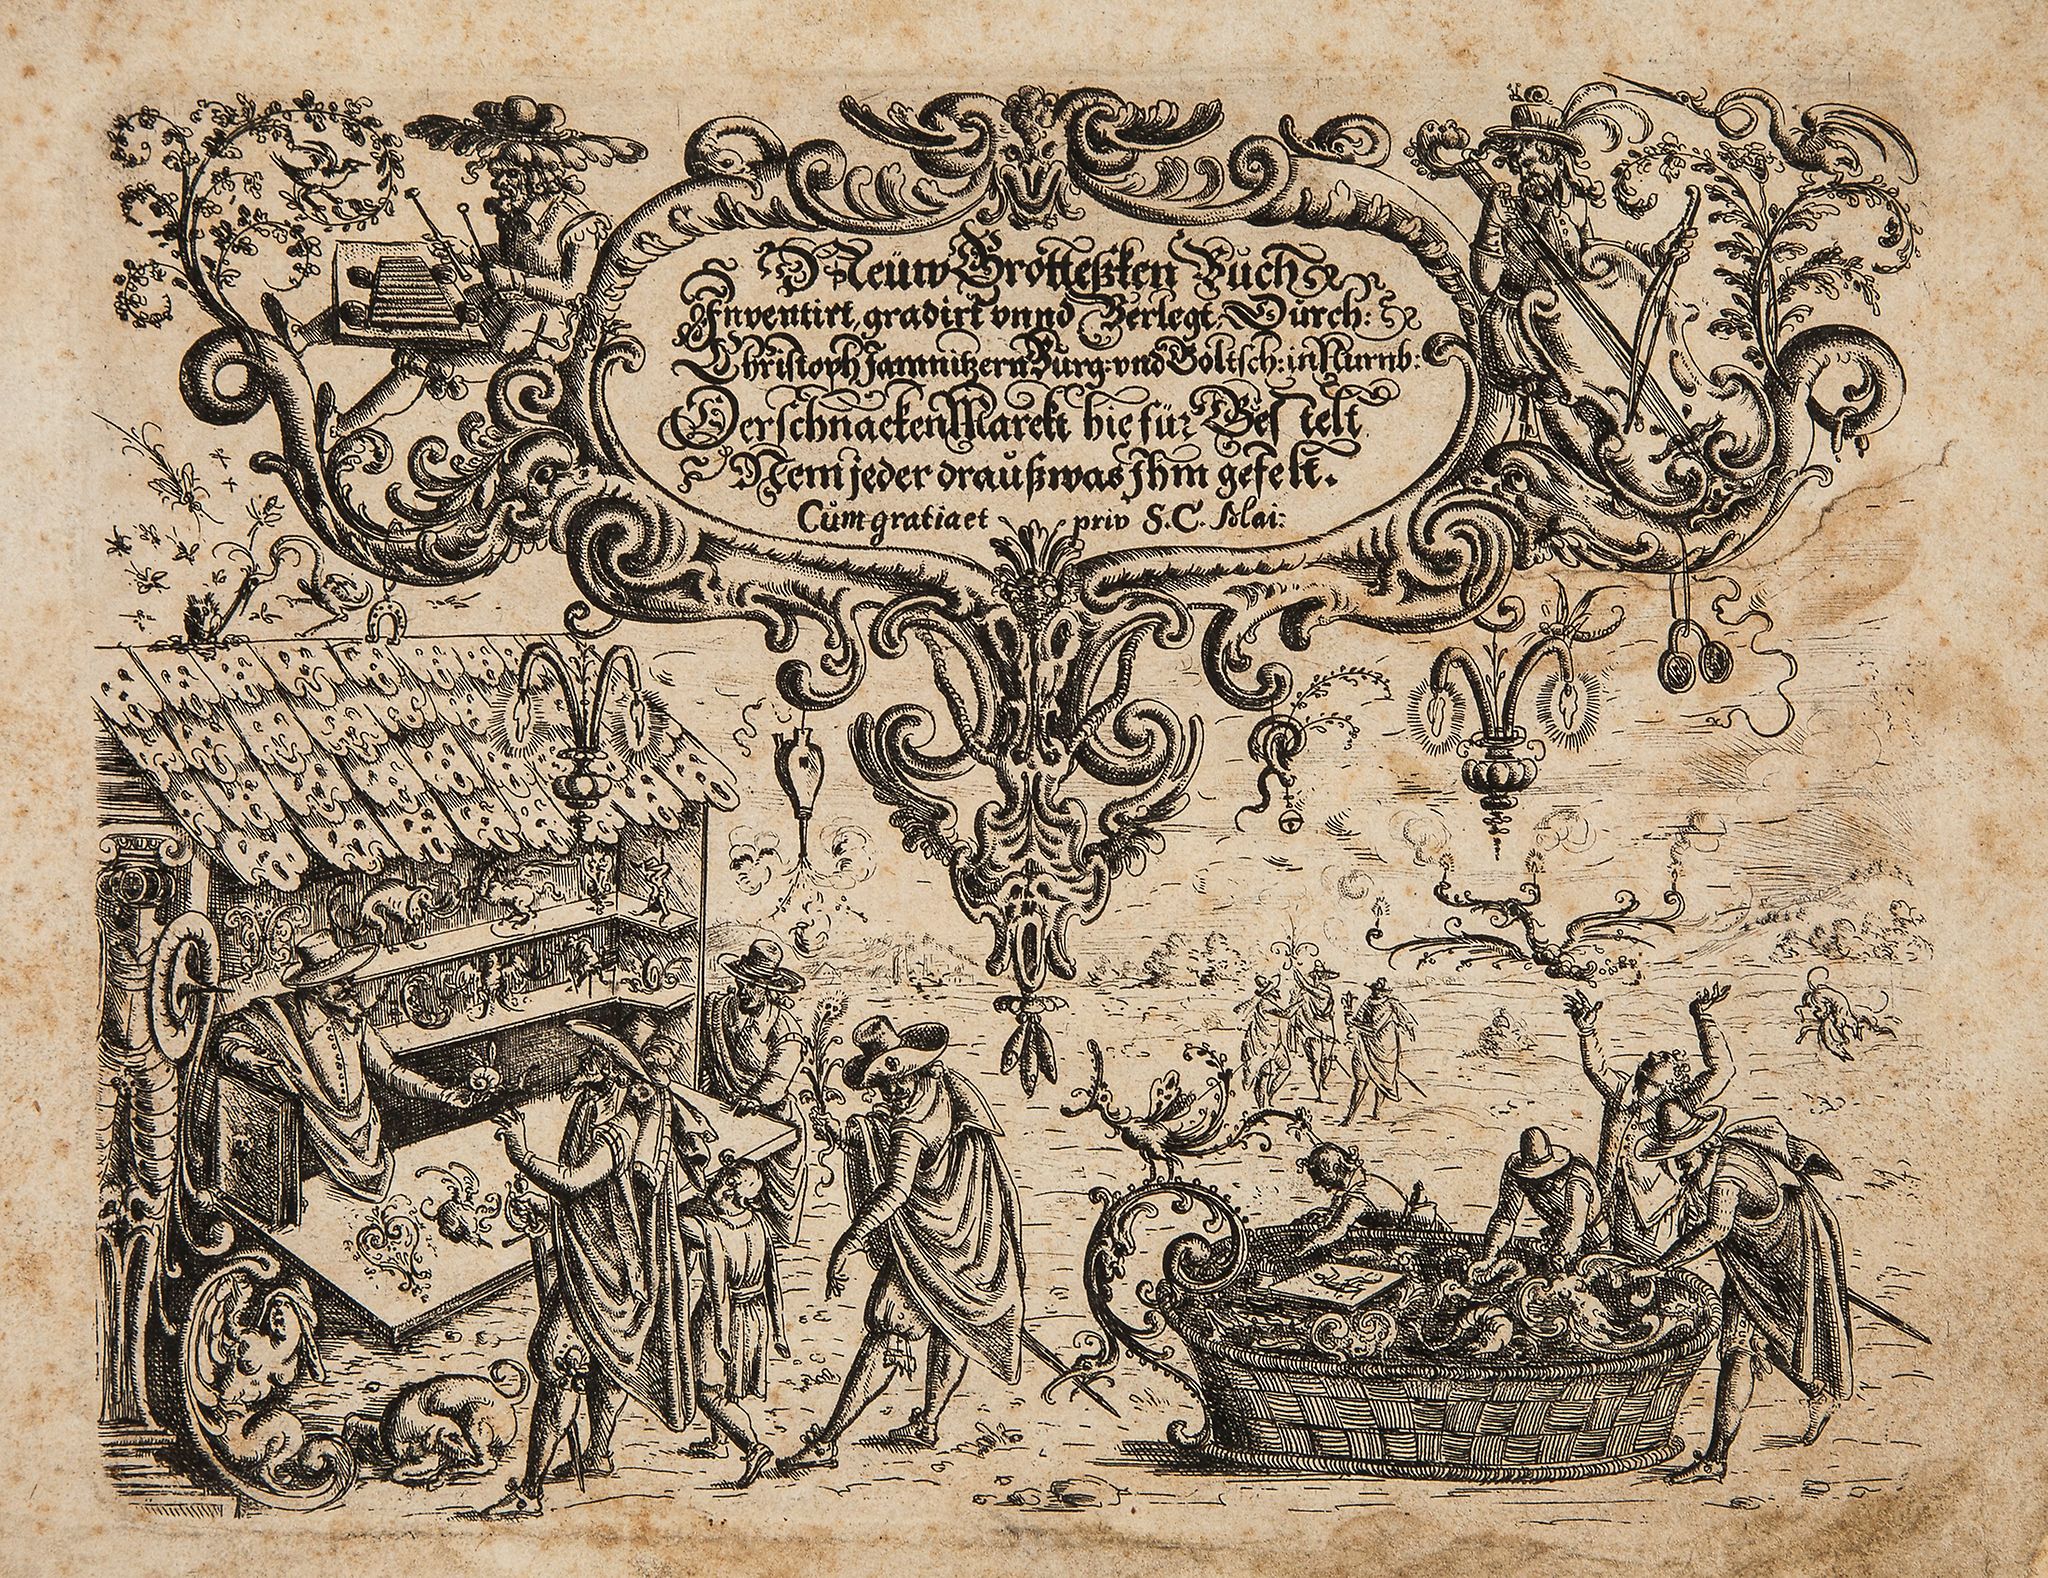 Neüw Grotteßken Buch
Inventirt, gradirt vnnd Verlegt, Dürch:
Christoph Jamnitzern Burg: vnd Goltsch: in Nurnb:
Der schnacken Marckt hie für Gestelt
Nem jeder draüß was Ihm gefelt.
Cüm gratia et priv S. C. Mai: